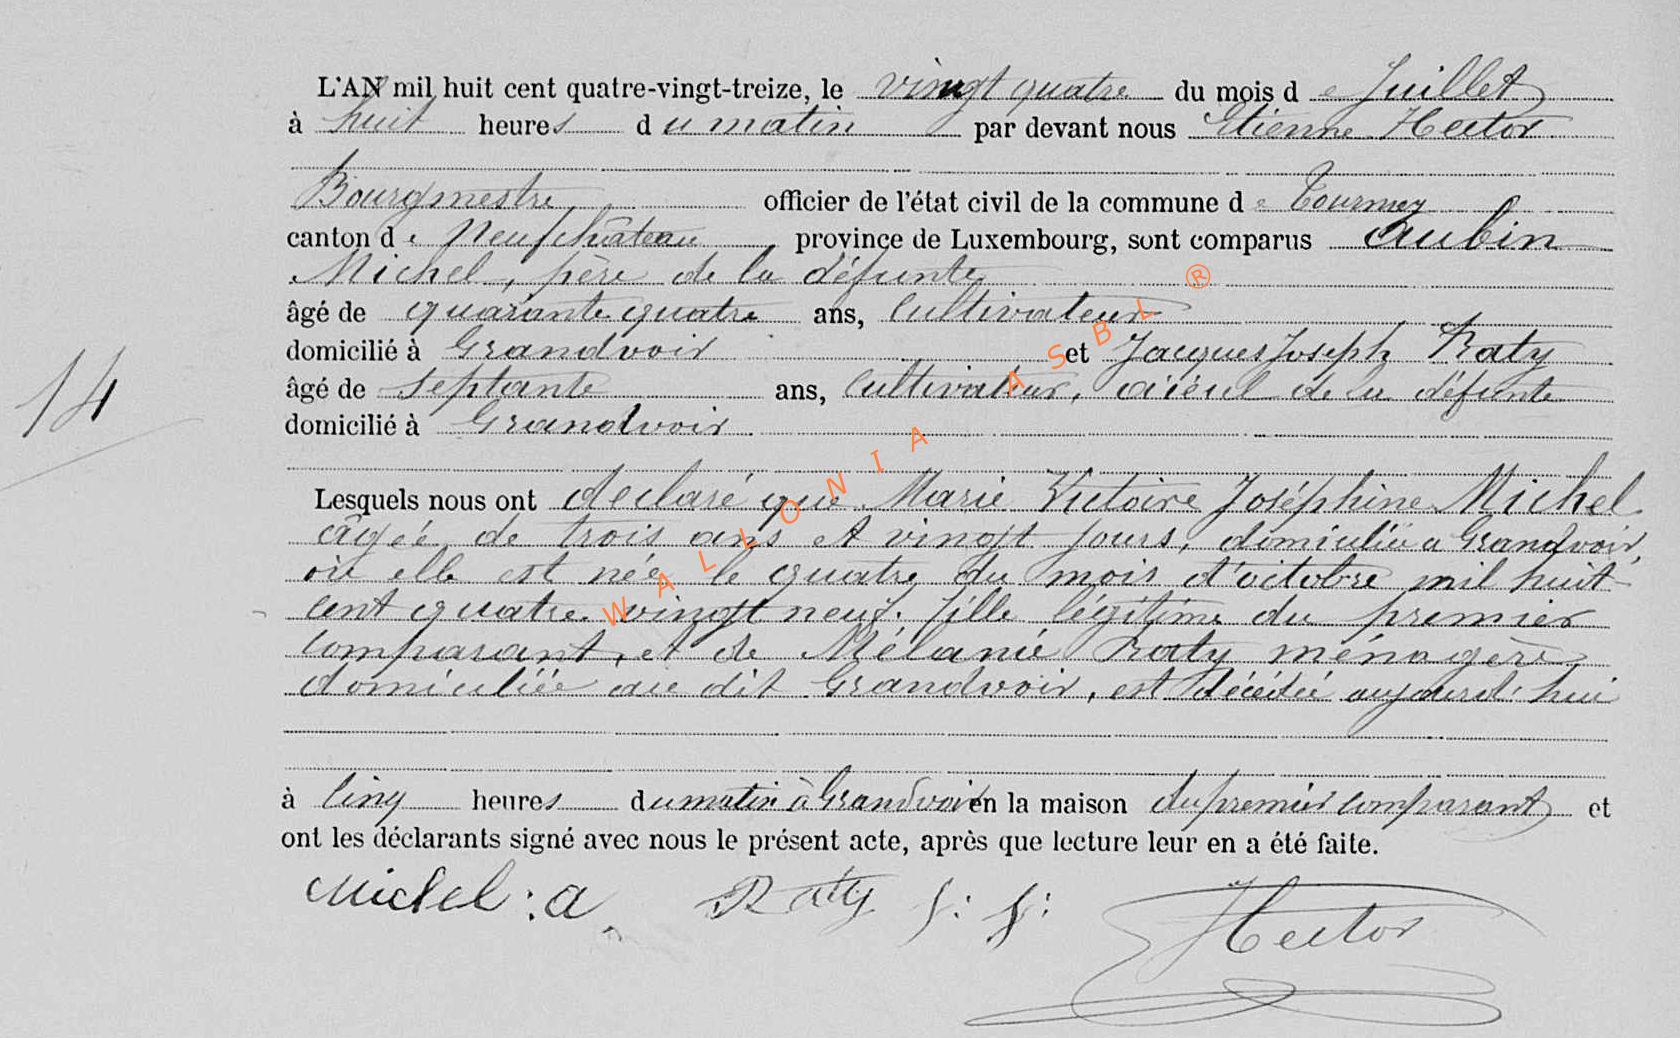 L'AN mil huit cent quatre-vingt-treize, le vingt quatre du mois de Juillet
à huit heures du matin par devant nous Etienne Hector
Bourgmestre officier de l'état civil de la commune de Tournay
canton de Neufchâteau, province de Luxembourg, sont comparus Aubin
Michel, père de la défunte
âgé de quarante quatre ans, Cultivateur
domicilié à Grandvoir et Jacques Joseph Raty
âgé de septante ans, Cultivateur, aïeul de la défunte
domicilié à Grandvoir
14
Lesquels nous ont declaré que Marie Victoire Joséphine Michel
âgée de trois ans et vingt jours, domiciliée a Grandvoir,
où elle est née le quatre du mois d'octobre mil huit
cent quatre vingt neuf. fille légitime du premier
comparant, et de Mélanie Raty ménagère,
domiciliée au dit Grandvoir, est décédée aujourd'hui
à cinq heures du matin à Grandvoir en la maison du premier comparant et
ont les déclarants signé avec nous le présent acte, après que lecture leur en a été faite.
Michel : a Raty J: J: Hector
WALLONIA ASBL ®